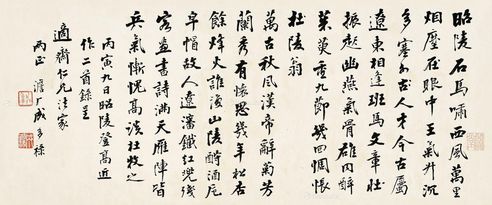 昭陵石馬嘯西風萬里
烟塵在眼中王氣升沉
多塞外古人才今古屬
遼東相逢班馬文章壯
振起幽燕氣骨雄同醉
茱萸重九節幾回惆悵
杜陵翁
萬古秋風漢帝辭菊芳
蘭秀有懷思幾年松杏
餘烽火誰復山陵酹酒卮
皁帽故人遼瀋鐵紅兜殘
客畫書詩滿天雁陣皆
兵氣慷慨高談杜牧之
丙寅九日昭陵登高近
作二首錄呈
適齋仁兄法家
兩正 澹厂成多祿